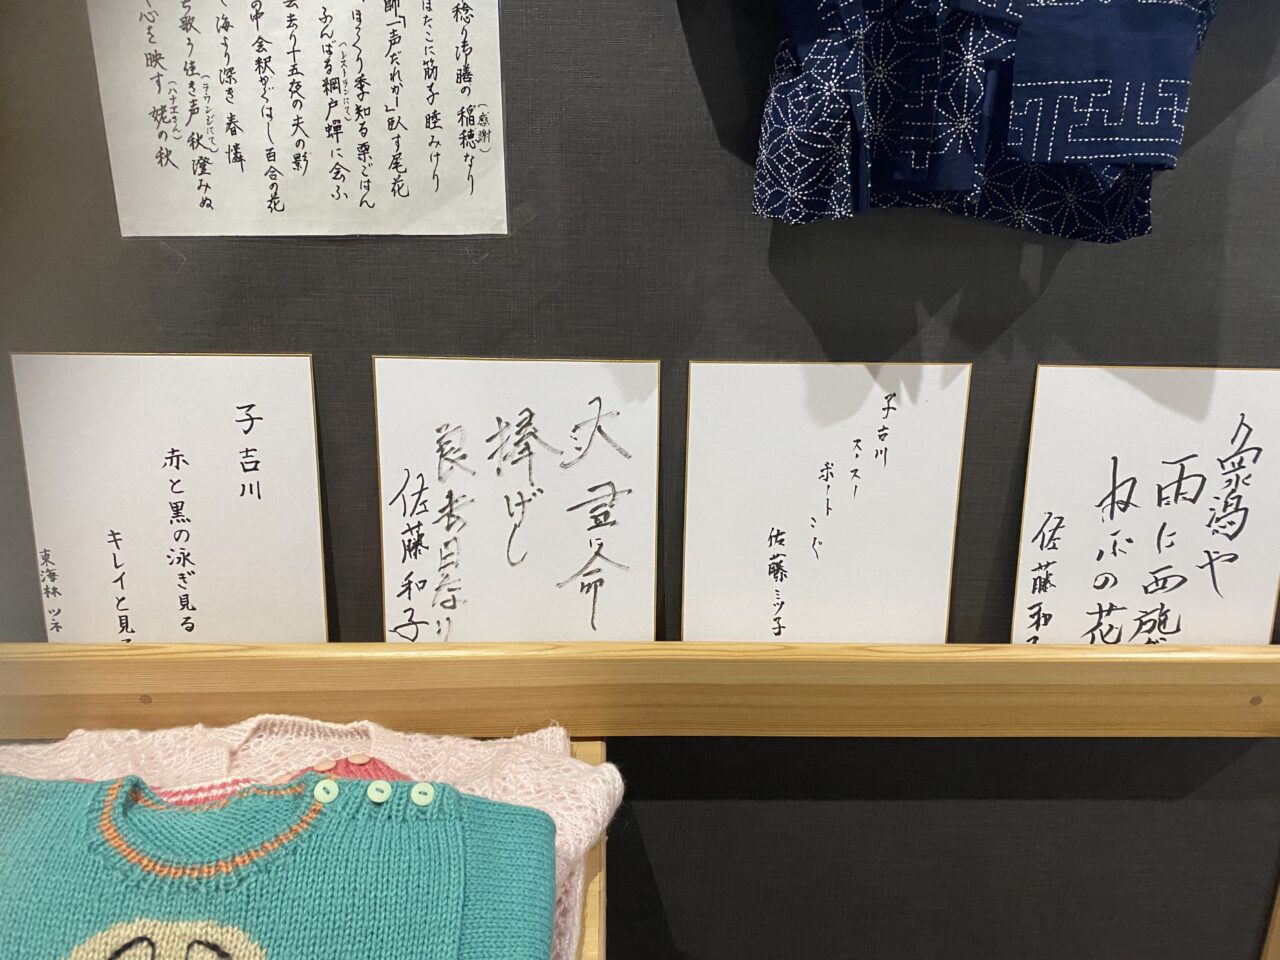 稔り御膳の稲穂なり
(感謝)
はたこに筋子睦みけり
師一声だれかー臥す尾花
ほっくり季知る栗ごはん
ふんばる網戸蟬に会ふ
(レストランにて)
去り十五夜の夫の影
の中会釈かぐはし百合の花
海より深き春憐
ち歌う佳き声秋澄みぬ
(ラウンジにて)
心を映す姥の秋
(ハナエさん)
子吉川
赤と黒の泳ぎ見る
キレイと見
東海林ツネ
捧げし
良き日なり
佐藤和子
子吉川
スースー
ボートこぐ
佐藤ミツ子
象潟や
雨に西施が
ねぶの花
佐藤和子